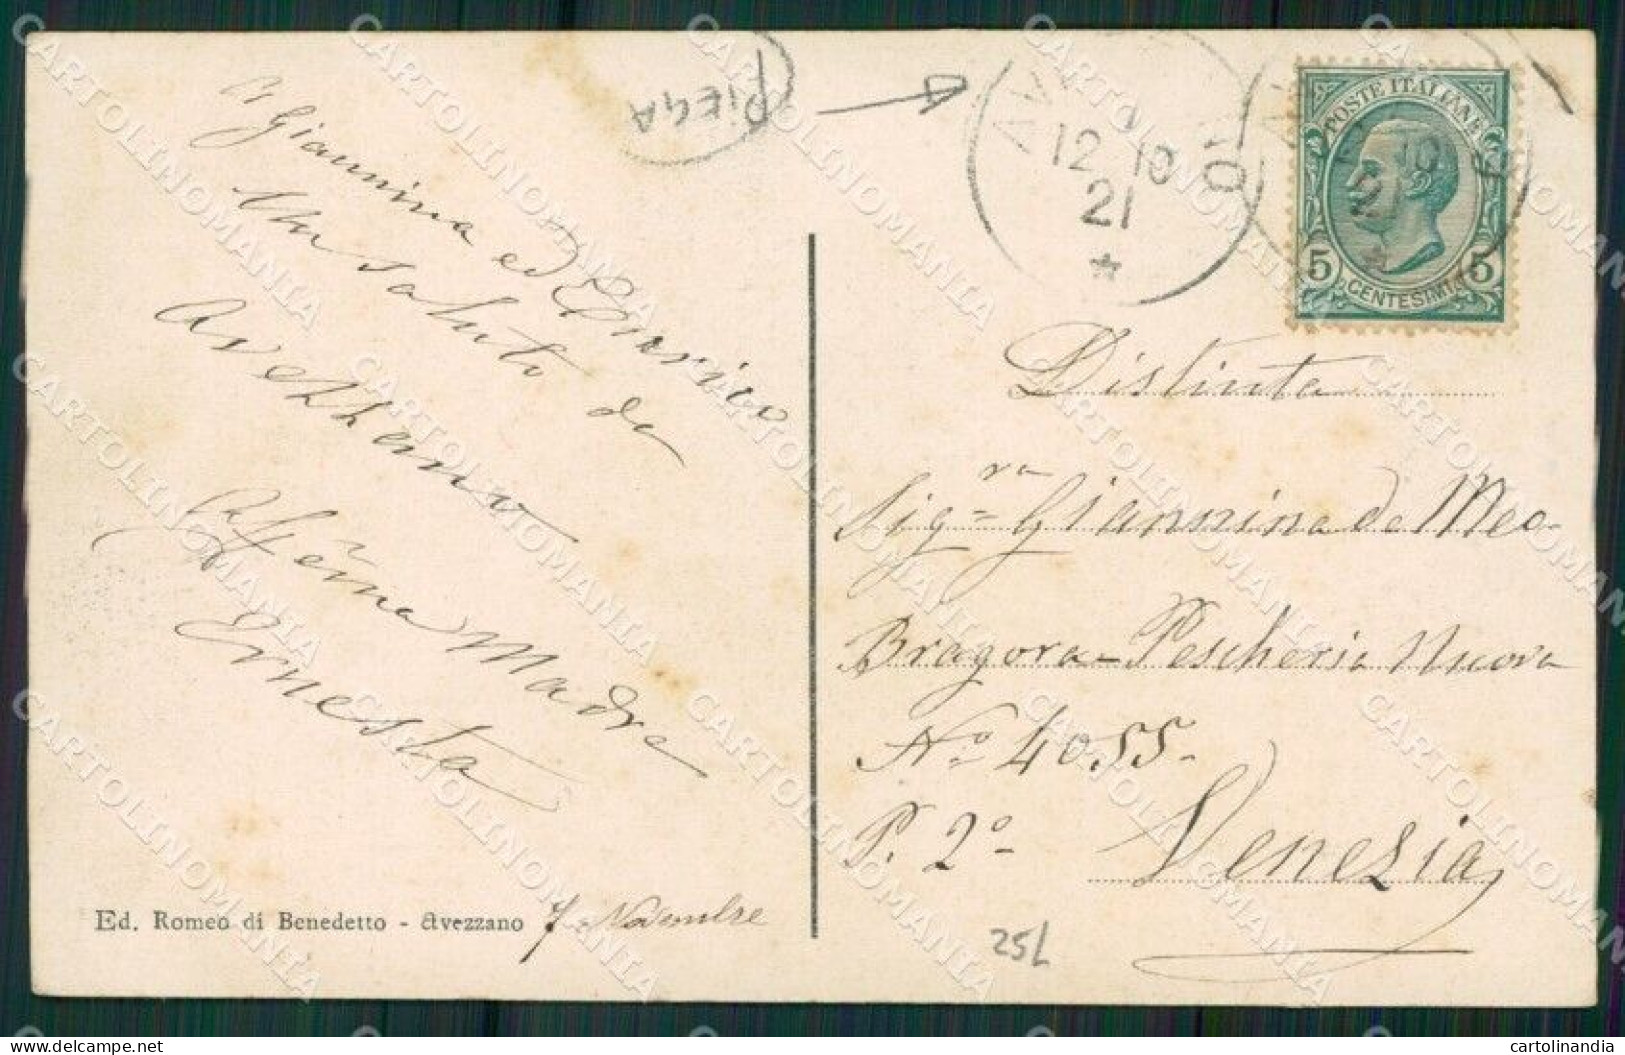 PIEGA
A Giannina ed Enrico
Un saluto da
Avezzano
Aff.ma Madre
Ernesta
Ed. Romeo di Benedetto - Avezzano 7 Novembre
AV
12 10
21
POSTE ITALIANE
5 CENTESIMI 5
Distinta
Sig.ra Giannina de Meo
Bragora - Pescheria Nuova
No 4055 -
P. 2o -
Venezia
25L
CARTOLINOMANIA
www.delcampe.net
cartolinandia